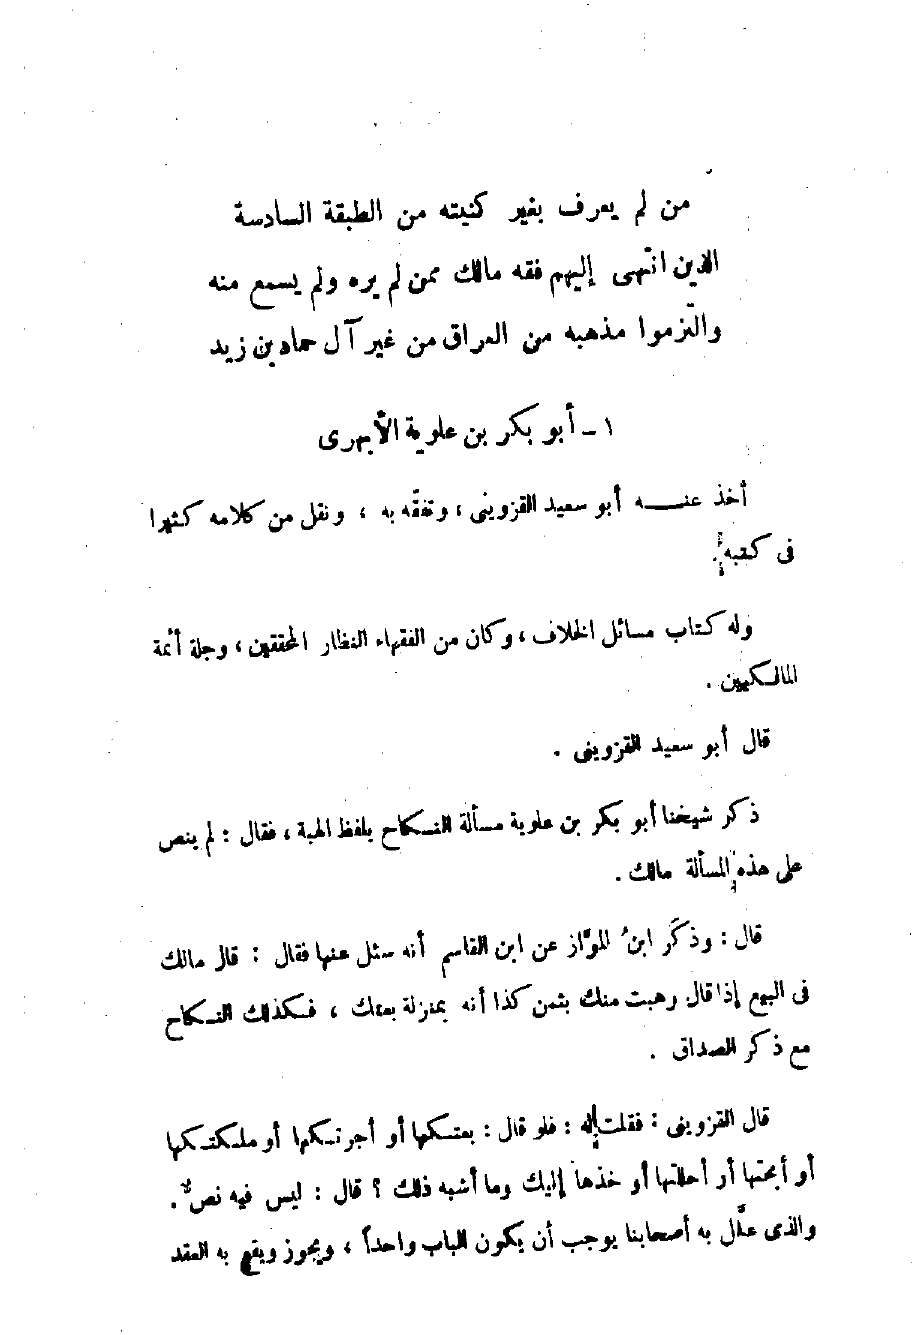 من لم يعرف بغير كنيته من الطبقة السادسة
الذين انتهى إليهم فقه مالك ممن لم يره ولم يسمع منه
والتزموا مذهبه من العراق من غير آل حماد بن زيد
١ - أبو بكر بن علوية الأبهرى
أخذ عنه أبو سعيد القزوينى ، وتفقّه به ، ونقل من كلامه كثيرا
فى كتبه .
وله كتاب مسائل الخلاف ، وكان من الفقهاء النظار المحققين ، وجلة أئمة
المالكيين .
قال أبو سعيد القزوينى .
ذكر شيخنا أبو بكر بن علوية مسألة النكاح بلفظ الهبة ، فقال : لم ينص
على هذه المسألة مالك .
قال : وذكَر ابنُ الموَّاز عن ابن القاسم أنه سئل عنها فقال : قال مالك
فى البيع إذا قال وهبت منك بثمن كذا أنه بمنزلة بعتك ، فكذلك النكاح
مع ذكر الصداق .
قال القزوينى : فقلت له : فلو قال : بعتكها أو أجرتكها أو ملكتكها
أو أبحتها أو أحللتها أو خذها إليك وما أشبه ذلك ؟ قال : ليس فيه نصٌ .
والذى علَّل به أصحابنا يوجب أن يكون الباب واحداً ، ويجوز ويقع به العقد